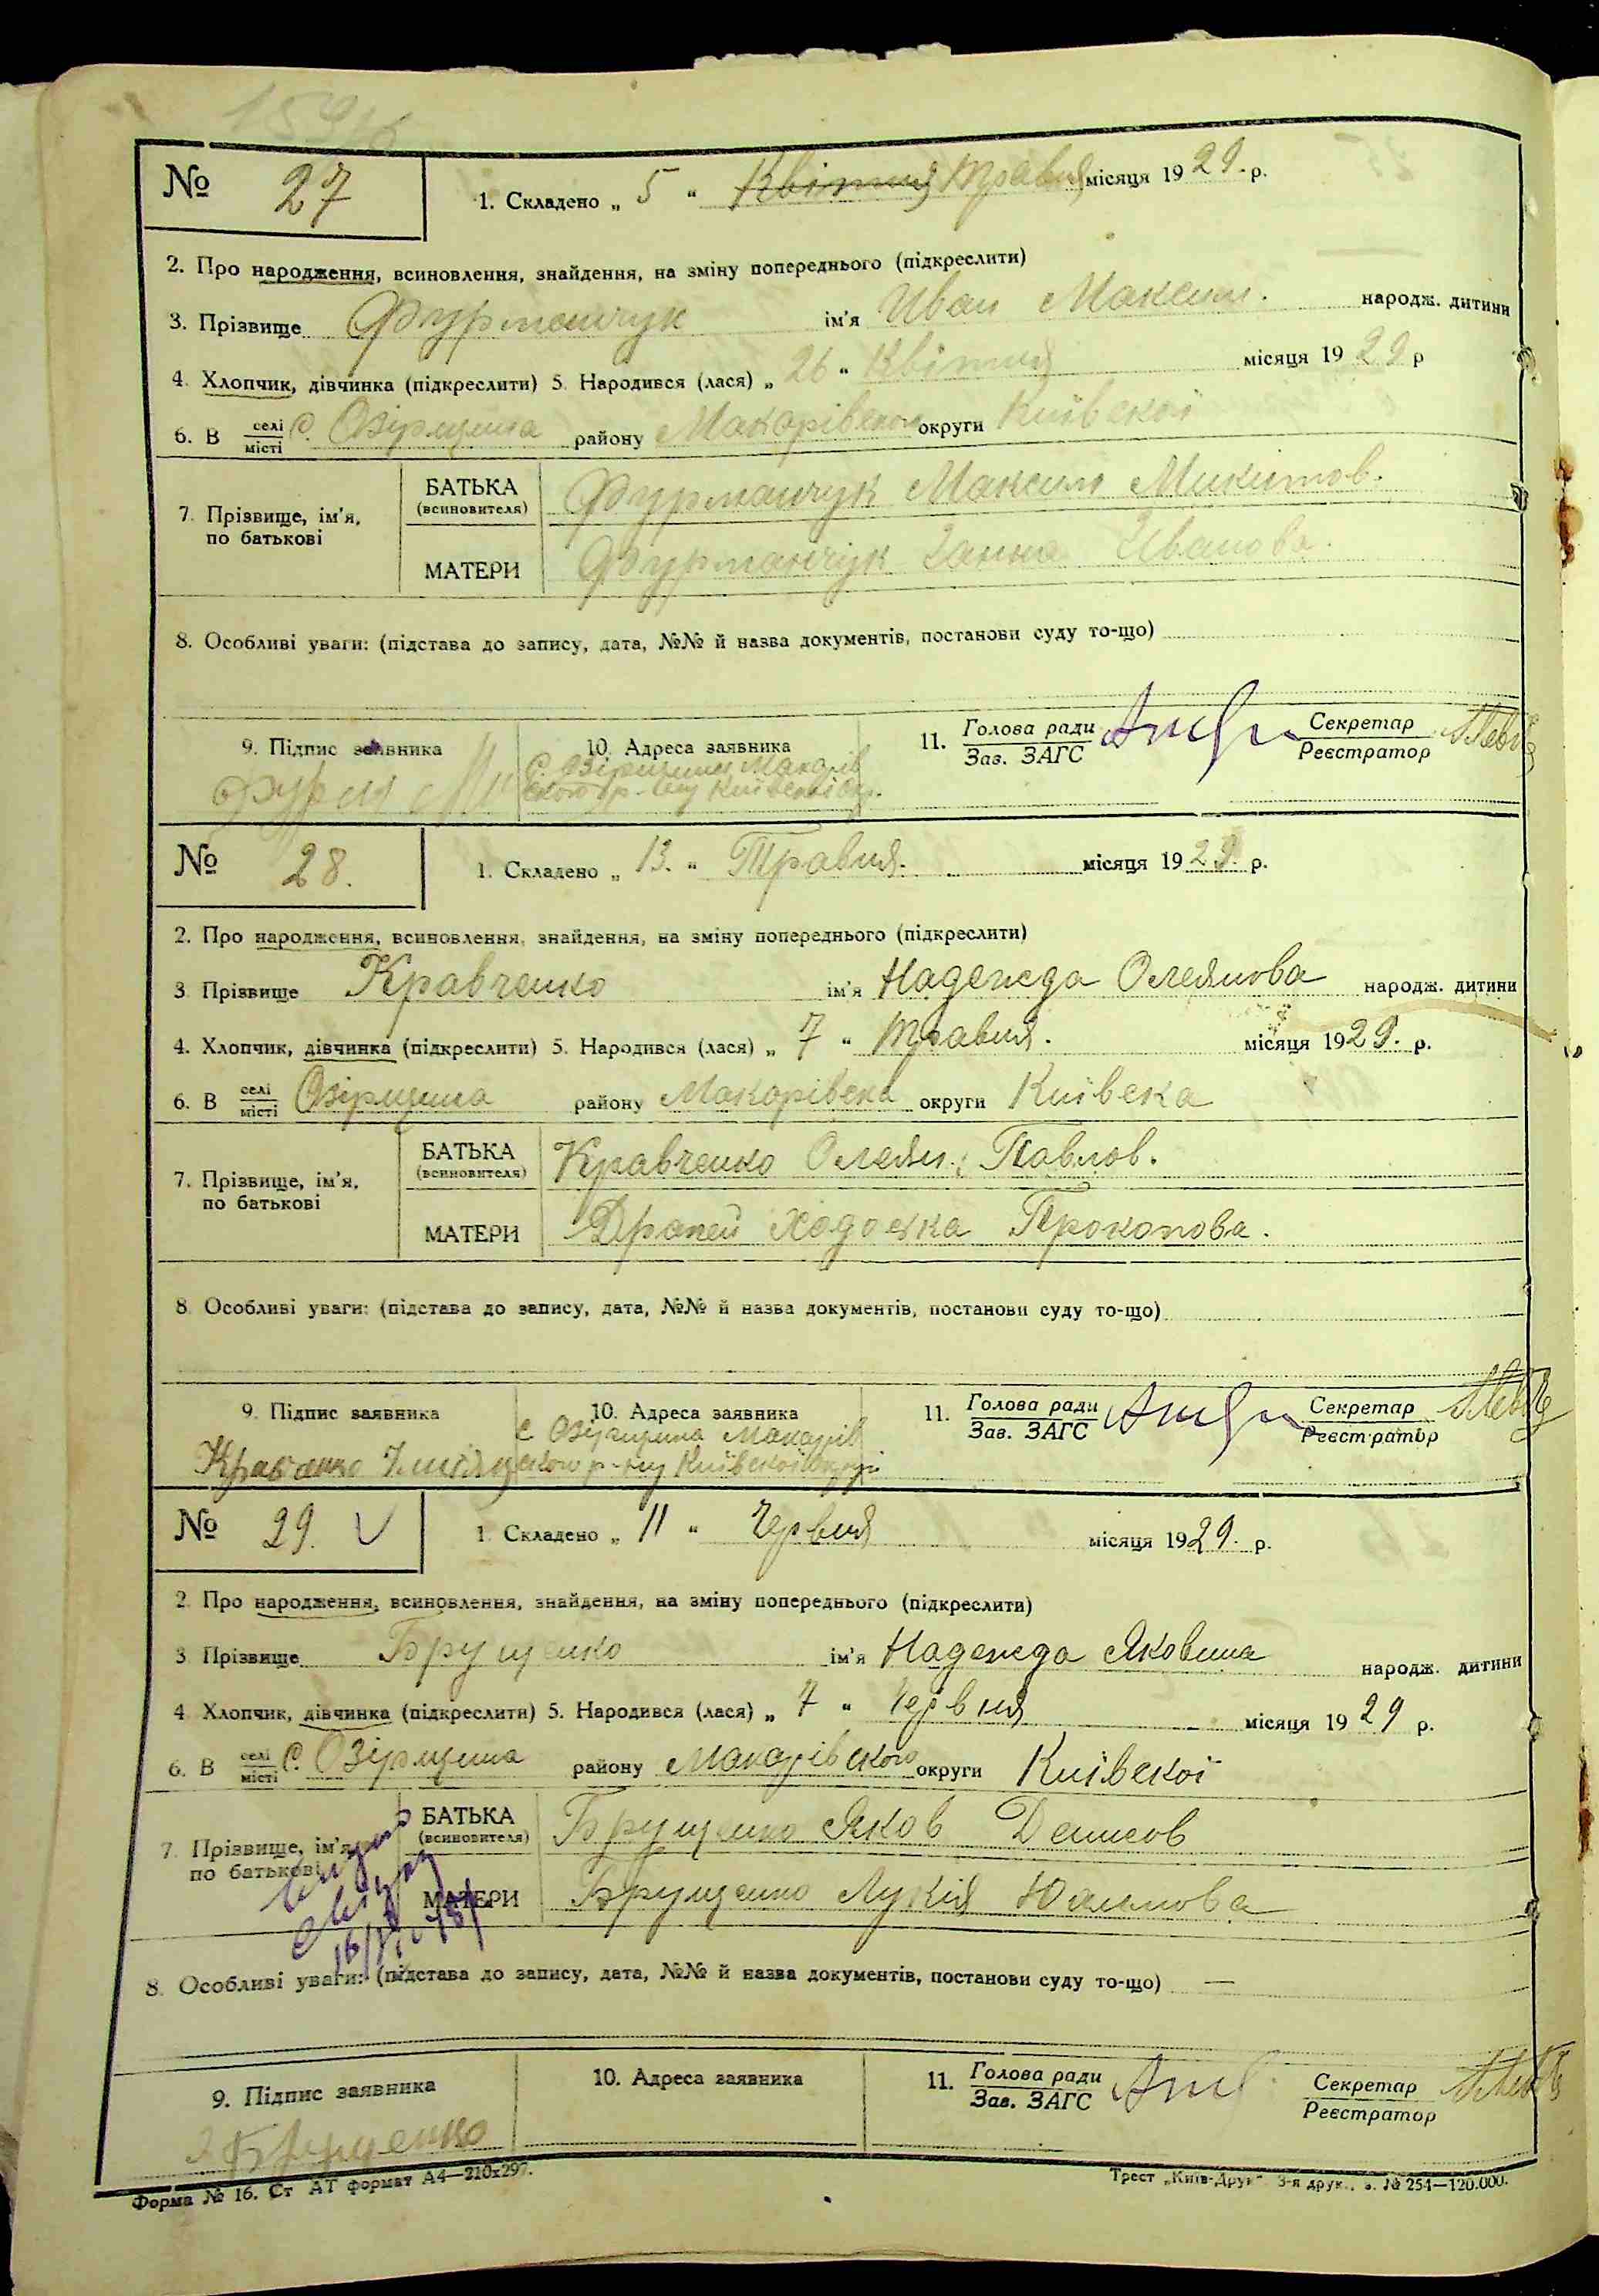 № 27
1. Складено „ 5 “ Квітня Травня місяця 1929. р.
2. Про народження, всиновлення, знайдення, на зміну попереднього (підкреслити)
3. Прізвище Фурманчук ім'я Иван Максим. народж. дитини
4. Хлопчик, дівчинка (підкреслити) 5. Народився (лася) „ 26 “ Квітня місяця 1929 р
6. В селі/місті с. Озірщина району Макарівського округи Київської
7. Прізвище, ім'я, по батькові
БАТЬКА (всиновителя) Фурманчук Максим Микитов.
МАТЕРИ Фурманчук Ганна Иванова.
8. Особливі уваги: (підстава до запису, дата, №№ й назва документів, постанови суду то-що)
9. Підпис заявника
10. Адреса заявника
с. Озірщина Макарів
ського р-ну Київської окр.
11. Голова ради
Зав. ЗАГС
Секретар
Реєстратор
№ 28.
1. Складено „ 13. “ Травня. місяця 1929. р.
2. Про народження, всиновлення, знайдення, на зміну попереднього (підкреслити)
3 Прізвище Кравченко ім'я Надежда Олеянова народж. дитини
4. Хлопчик, дівчинка (підкреслити) 5. Народився (лася) „ 7 “ Травня. місяця 1929. р.
6. В селі/місті Озірщина району Макарівська округи Київська
7. Прізвище, ім'я, по батькові
БАТЬКА (всиновителя) Кравченко Олеян. Павлов.
МАТЕРИ Драпей Ходоска Прокопова.
8 Особливі уваги: (підстава до запису, дата, №№ й назва документів, постанови суду то-що)
9. Підпис заявника
10. Адреса заявника
с Озірщина Макарів
ського р-ну Київської округи
11. Голова ради
Зав. ЗАГС
Секретар
Реєстратор
№ 29. V
1 Складено „ 11 “ Червня місяця 1929. р.
2 Про народження, всиновлення, знайдення, на зміну попереднього (підкреслити)
3 Прізвище Брущенко ім'я Надежда Яковина народж. дитини
4 Хлопчик, дівчинка (підкреслити) 5. Народився (лася) „ 7 “ Червня місяця 1929 р.
6. В селі/місті с. Озірщина району Макарівського округи Київської
7 Прізвище, ім'я, по батькові
БАТЬКА (всиновителя) Брущенко Яков Денисов
МАТЕРИ Брущенко Лукія
8. Особливі уваги: (підстава до запису, дата, №№ й назва документів, постанови суду то-що) —
9. Підпис заявника
Брущенко
10. Адреса заявника
11. Голова ради
Зав. ЗАГС
Секретар
Реєстратор
Форма № 16. Ст АТ формат А4—210x297.
Трест „Київ-Друк“ 3-я друк., з. № 254—120.000.